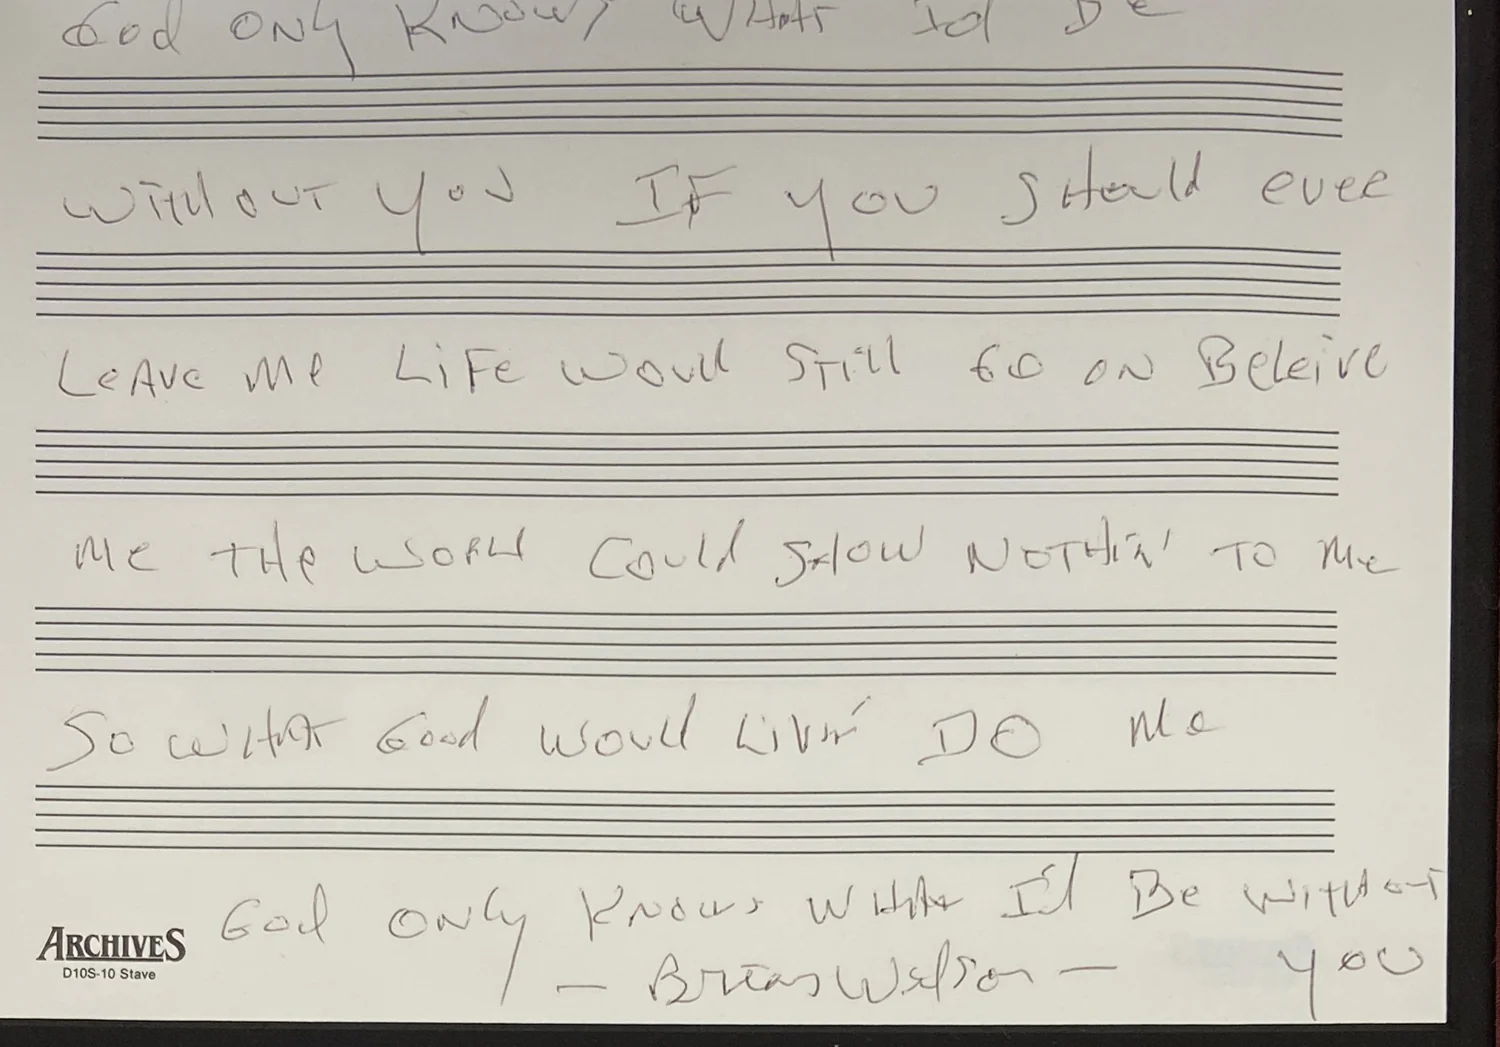 God only Knows What Id Be
without you IF you should ever
Leave me LiFe would still Go on Beleive
me the world could show nothin' to me
So what Good would livin' Do me
God only Knows what I'd Be without
you
— Brian Wilson —
ARCHIVES
D10S-10 Stave